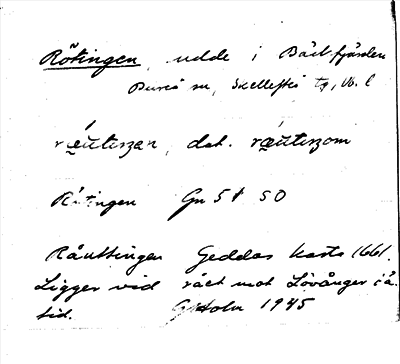 Rötingen, udde i Bäckfjärden
Bureå sn, Skellefteå tg, Vb. l
ræutɩŋən, dat. ræutɩŋom
Rötingen Gn 51 SO
Råuttingen Geddas karta 1661.
Ligger vid rået mot Lövånger i ä.
tid. G Holm 1945